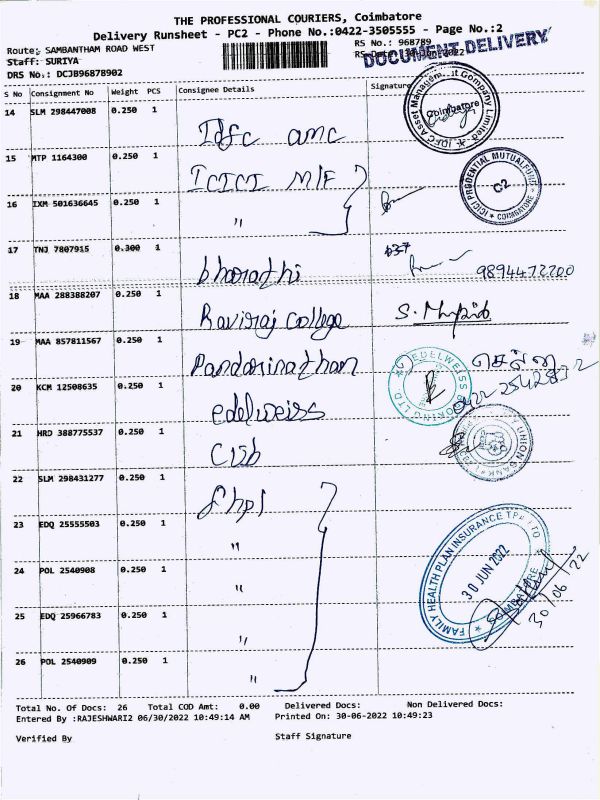 THE PROFESSIONAL COURIERS, Coimbatore
Delivery Runsheet - PC2 - Phone No.:0422-3505555 - Page No.:2
Route: SAMBANTHAM ROAD WEST
RS No.: 968789
Staff: SURIYA
DOCUMENT DELIVERY
DRS No.: DCJB96878902
S No Consignment No Weight PCS Consignee Details Signature
14 SLM 298447008 0.250 1 Idfc amc
15 MTP 1164300 0.250 1 ICICI M/F
16 IXM 501636645 0.250 1 "
17 TNJ 7807915 0.300 1 bharathi
9894472200
18 MAA 288388207 0.250 1 Raviraj College
19 MAA 857811567 0.250 1 Pandarinathan
20 KCM 12508635 0.250 1 edelweiss
0422 2542832
21 HRD 388775537 0.250 1 CUB
22 SLM 298431277 0.250 1 fhpl
23 EDQ 25555503 0.250 1 "
24 POL 2540908 0.250 1 "
25 EDQ 25966783 0.250 1 "
26 POL 2540909 0.250 1 "
IDFC Asset Management Company Limited
Coimbatore
ICICI PRUDENTIAL MUTUAL FUND
C2
COIMBATORE
EDELWEISS BROKING LTD.
UNION BANK
FAMILY HEALTH PLAN INSURANCE TPA LTD
30 JUN 2022
COIMBATORE
30/06/22
Total No. Of Docs: 26 Total COD Amt: 0.00 Delivered Docs: Non Delivered Docs:
Entered By :RAJESHWARI2 06/30/2022 10:49:14 AM Printed On: 30-06-2022 10:49:23
Verified By Staff Signature